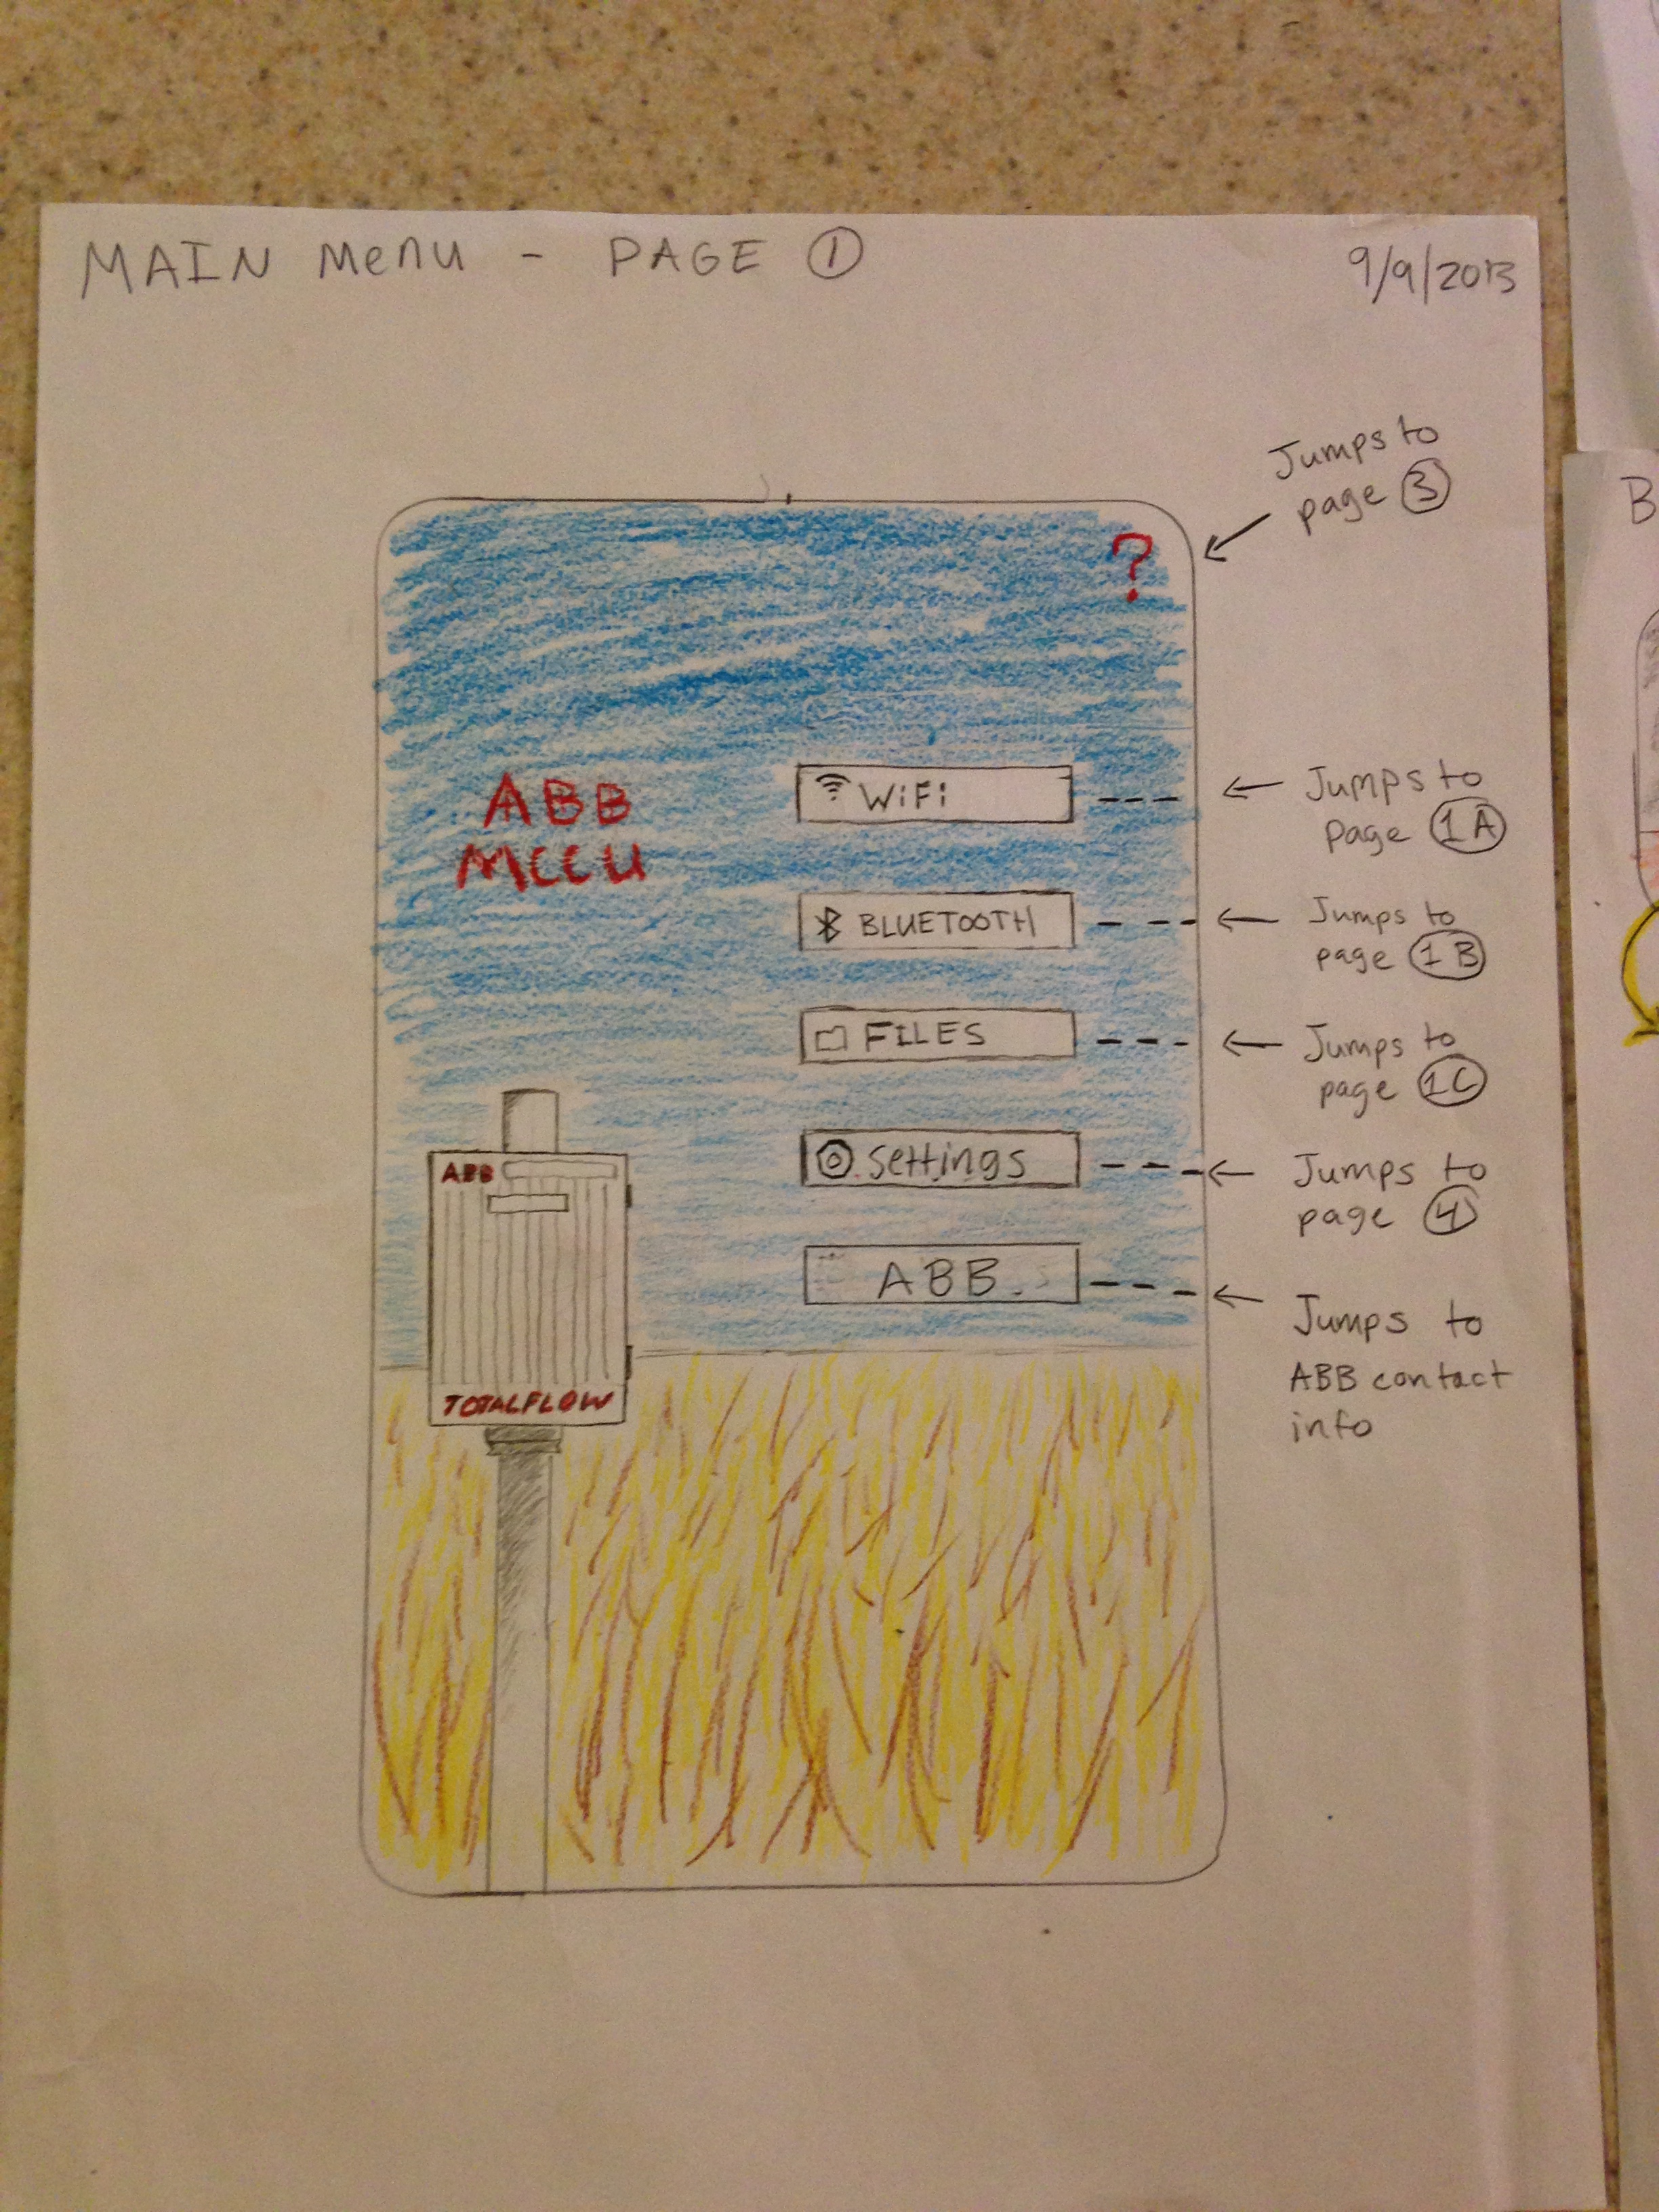 MAIN Menu - PAGE 1
9/9/2013
Jumps to
page 3
?
ABB
MCCU
WiFi
Jumps to
page 1A
BLUETOOTH
Jumps to
page 1B
FILES
Jumps to
page 1C
settings
Jumps to
page 4
ABB
Jumps to
ABB contact
info
ABB
TOTALFLOW
B